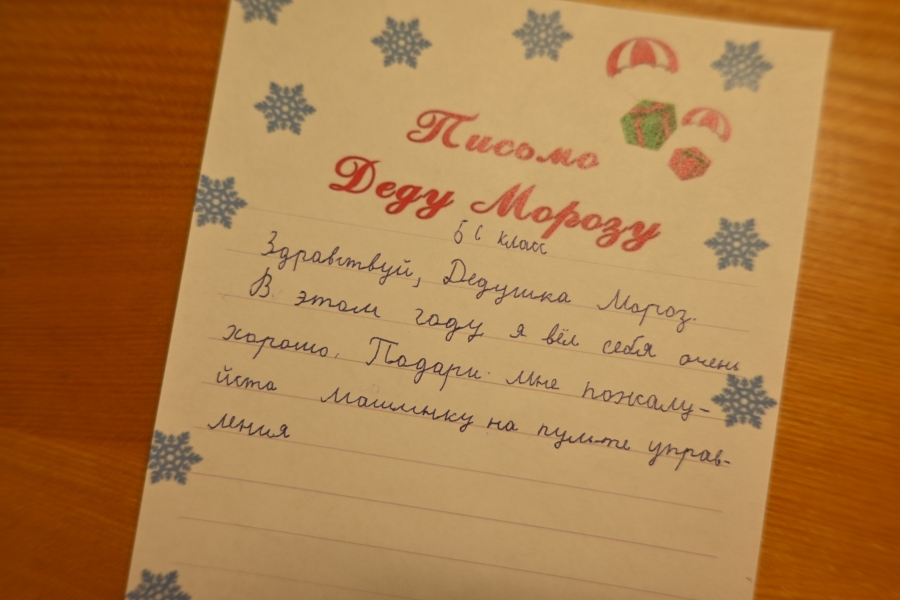 Письмо
Деду Морозу
5 с класс
Здравствуй, Дедушка Мороз.
В этом году я вёл себя очень
хорошо. Подари мне пожалу-
йста машинку на пульте управ-
ления